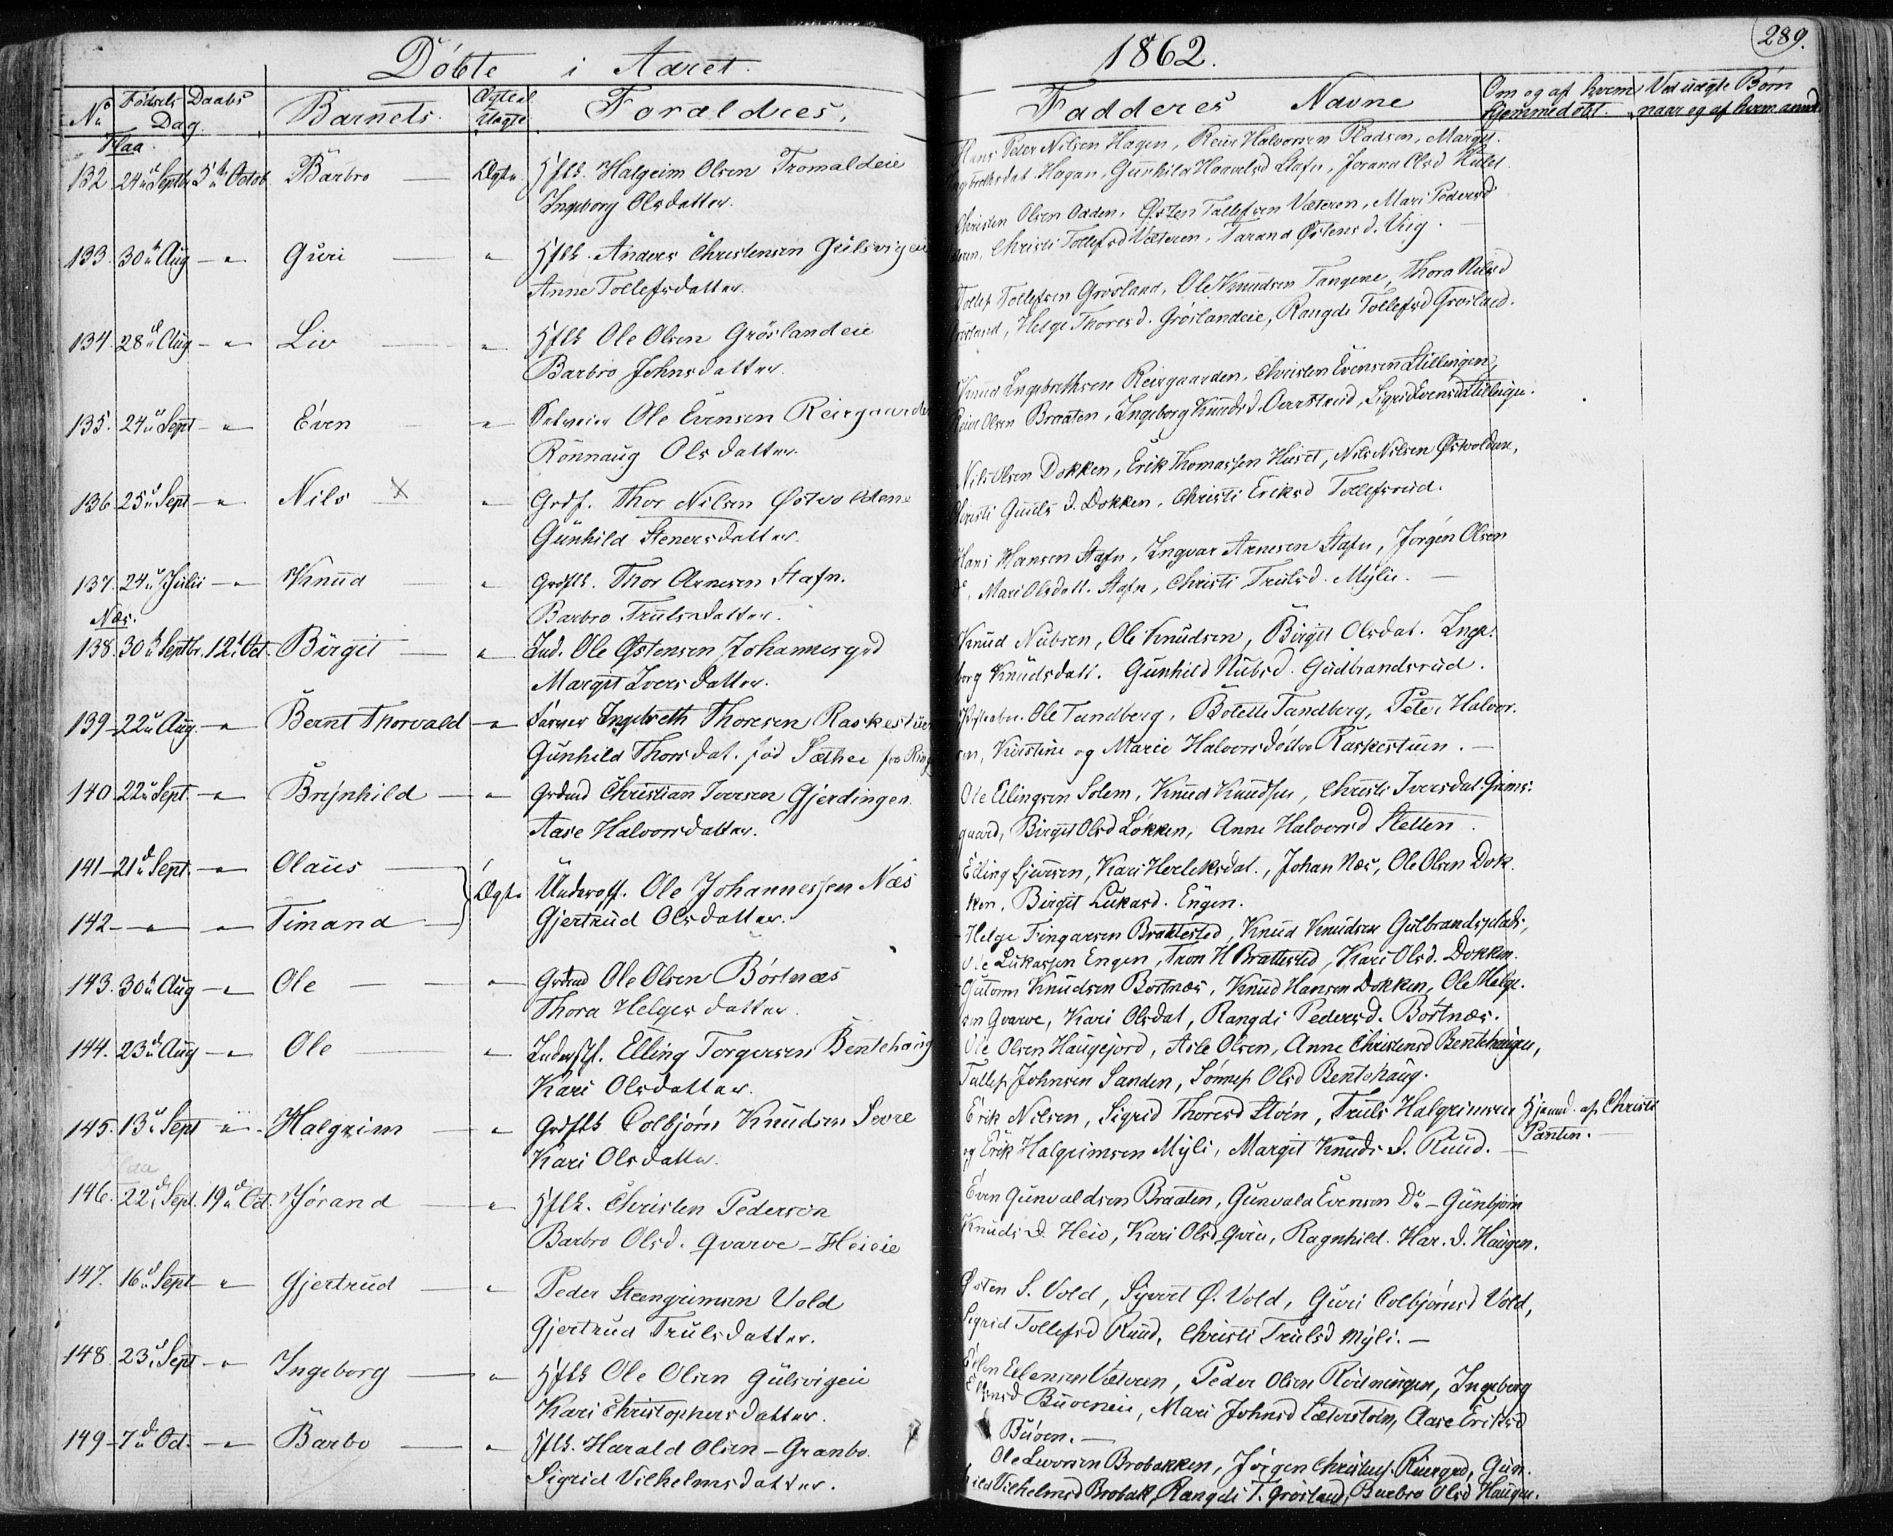 289.
Döbte i Aaret 1862.
No Födsels Daabs Dag. Barnets Ægte el. Uægte Forældres, Fadderes Navne Om og af hvem hjemmedöbt. Ved uægte Börn naar og af hvem anmd.
Flaa.
132. 24 Septbr. 5 Octob. Barbro — Ægte. Halgrim Olsen Tromaldeie
Ingeborg Olsdatter.
Hans Peder Nilsen Hagen, Reier Halvorsen Pladsen, Margit
Hagen, Gunhild Haavelsd Stafn, Jorand Olsd
133. 30 Aug — " Guri — " Anders Christensen Gulsvigeie
Anne Tollefsdatter.
Christen Olsen Odden, Østen Tollefsen Væteren, Mari Pedersd
Christi Tollefsd Væteren, Jorand Østensd. Viig.
134. 28 Aug — " Liv — " Ole Olsen Gröslandeie
Barbro Johnsdatter.
Tollef Tollefsen Grösland, Ole Knudsen Tangene, Thora Nilsd
Grösland, Helge Thoresd. Gröslandeie, Rangdi Tollefsd Grösland.
135. 24 Sept — " Even — " Ole Evensen Reirgaarden
Rönnaug Olsdatter.
Knud Ingebrethsen Reirgaarden, Christen Evensen Stillingen,
Reier Olsen Braaten, Ingeborg Knudsd. Aavestrud, Sigri Evensd Stillingn.
136. 25 Sept — " Nils — x " Grdf. Thor Nilsen Østvolden
Gunhild Stenersdatter.
Nils Olsen Dokken, Erik Thomassen Huset, Nils Nilsen Østvolden,
Christi Gunils D. Dokken, Christi Eriksd Tollefsrud.
137. 24 Julii — " Knud — " Grdflk. Thor Arnesen Stafn.
Barbro Trulsdatter.
Hans Hansen Stafn, Ingvar Arnesen Stafn, Jörgen Olsen
Mari Olsdatt. Stafn, Christi Trulsd. Mylie. —
Næs.
138. 30 Septbr. 12 Oct. Birgit — " Ind. Ole Østensen Johannesgrd
Margit Iversdatter.
Knud Nubsen, Ole Knudsen, Birgit Olsdat. Inge-
borg Knudsdatt. Gunhild Nubsd. Gudbrandsrud.
139 — 22 Aug. — " Bernt Thorvald — " Farver Ingebreth Thoresen Raskestuen
Gunhild Thorsdat. föd Sæther fra Ring
Ole Tandberg, Botelle Tandberg, Peter Halvor-
sen, Kirstine og Marie Halvorsdöttre Raskestuen. —
140 — 22 Sept. — " Brynhild — " Grdmd Christian Iversen Gjerdingen
Aase Halvorsdatter.
Ole Ellingsen Solem, Knud Knudsen, Christi Iversdat. Grims-
gaard, Birgit Olsd Lökken, Anne Halvorsd Stetten.
141 — 21 Sept. — " Olaus — Ægte Underoff. Ole Johannessen Næs
Gjertrud Olsdatter.
Elling Sjursen, Kari Herleiksdat., Johan Næs, Ole Olsen Dok-
ken, Birgit Lukasd. Engen.
142 — " — " Timand —
Helge Fingarsen Brattested, Knud Knudsen Gulbrandsplads,
Ole Lukassen Engen, Tron H Brattested, Kari Olsd. Dokken.
143. 30 Aug — " Ole — " Grdmd Ole Olsen Börtnæs
Thora Helgesdatter.
Gutorm Knudsen Börtnæs, Knud Hansen Dokken, Ole Helge-
sen Qvarve, Kari Olsdat, Rangdi Pedersd. Börtnæs.
144. 23 Aug — " Ole — " Elling Torgersen Bentehaug
Kari Olsdatter.
Ole Olsen Haugejord, Asle Olsen, Anne Christensd Bentehaugen,
Tollef Johnsen Sanden, Sönnef Olsd Bentehaug.
145. 13 Sept — " Halgrim — " Grdflk Colbjørn Knudsen Sevre
Kari Olsdatter.
Erik Nilsen, Sigrid Thoresd Stvön, Truls Halgrimsen
og Erik Halgrimsen Myli, Margit Knuds D. Ruud. —
Hjemd. af Christi
Panten. —
Flaa
146. 22 Sept. 19 Oct. Jörand — " Christen Pedersen
Barbro Olsd. Qvarve-Heieie
Even Gunvaldsen Braaten, Gunvald Evensen Do — Gunbjör
Knuds D. Heie, Kari Olsd Qvin, Ragnhild. Har. D. Haugen.
147. 16 Sept — " Gjertrud — " Peder Steengrimsen Vold
Gjertrud Trulsdatter.
Østen S. Vold, Syvert Ø. Vold, Guri Colbjörnsd Vold,
Sigrid Tollefsd Ruud, Christi Trulsd Myli. —
148. 23 Sept — " Ingeborg — " Ole Olsen Gulsvigeie
Kari Christophersdatter.
Væteren, Peder Olsen Rödningen, Ingeborg
Buveneie, Mari Johnsd Sæterstöen, Aase Eriksd
Buven. —
149 — 7 Oct. — " Barbo — " Harald Olsen — Granbo.
Sigrid Vilhelmsdatter.
Ole Brobakken, Jörgen Reiergrd, Gun-
hild Vilhelmsd Brobak, Rangdi T. Grösland, Barbro Olsd Haugen.